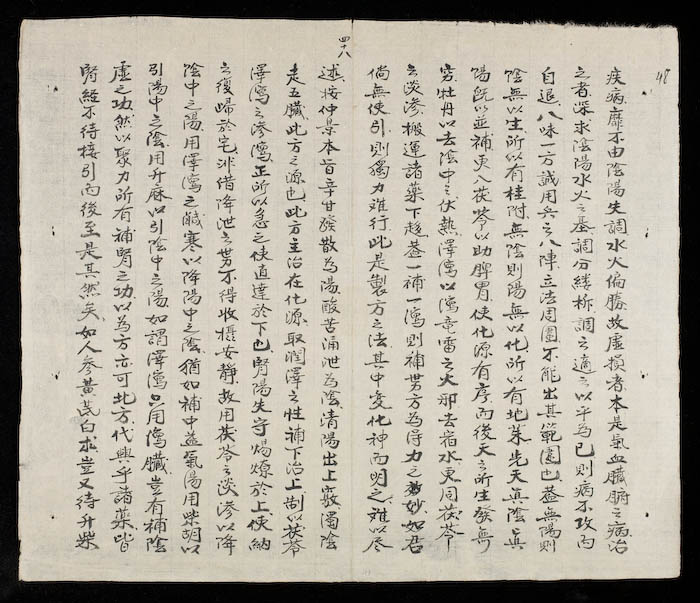 48
疾病靡不由陰陽失調水火偏勝故虛損者本是氣血臟腑之病治
之者深求陰陽水火之基調分縷柝調之適之以平為已則病不攻而
自退八味一方誠用兵之八陣立法周圍不能出其範圍也蓋無陽則
陰無以生所以有桂附無陰則陽無以化所以有地茱先天真陰真
陽既以並補更入茯苓以助脾胃使化源有序而後天之所生發無
窮牡丹以去陰中之伏熱澤瀉以瀉竜雷之火邪去宿水更用茯苓
之淡滲搬運諸藥下趍蓋一補一瀉則補男方為得力之妙如君
倘無使引則獨力难行此是製方之法其中变化神而明之难以尽
四十八
述按仲景本旨辛甘發散為陽酸苦涌泄為陰清陽出上竅濁陰
走五臟此方之源也此方主治在化源取潤澤之性補下治上制以茯苓
澤瀉之滲瀉正所以急之使直達於下也腎陽失守煬燎於上使納
之復歸於宅非借降泄之势不得收攝安靜故用茯苓之淡滲以降
陰中之陽用澤瀉之鹹寒以降陽中之陰猶如補中益氣湯用柴胡以
引陽中之陰用升麻以引陰中之陽如謂澤瀉只用瀉臟豈有補陰
虛之功然以聚力所有補腎之功以為方亦可北方代興乎諸藥皆
腎經不待接引而後至是其然矣如人參黃芪白朮豈又待升柴